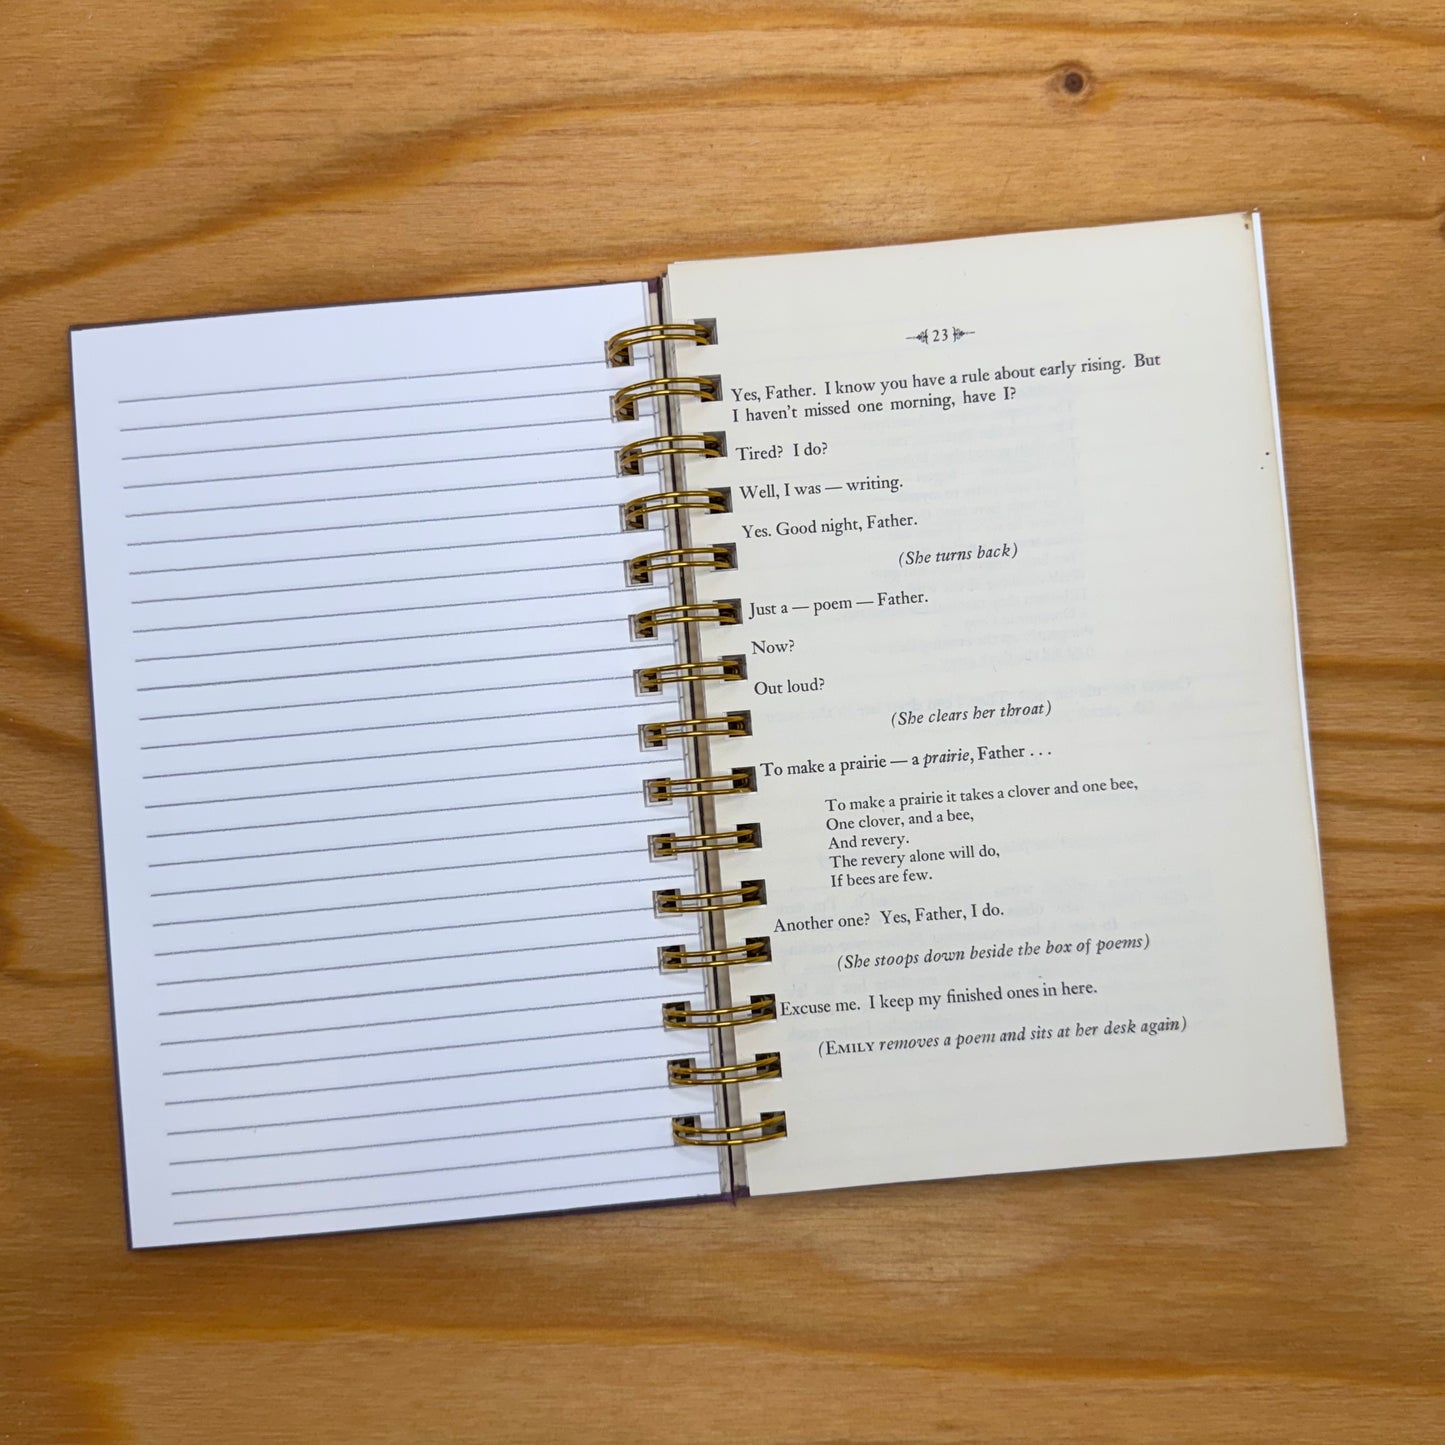 23
Yes, Father. I know you have a rule about early rising. But
I haven't missed one morning, have I?
Tired? I do?
Well, I was — writing.
Yes. Good night, Father.
(She turns back)
Just a — poem — Father.
Now?
Out loud?
(She clears her throat)
To make a prairie — a prairie, Father . . .
To make a prairie it takes a clover and one bee,
One clover, and a bee,
And revery.
The revery alone will do,
If bees are few.
Another one? Yes, Father, I do.
(She stoops down beside the box of poems)
Excuse me. I keep my finished ones in here.
(EMILY removes a poem and sits at her desk again)